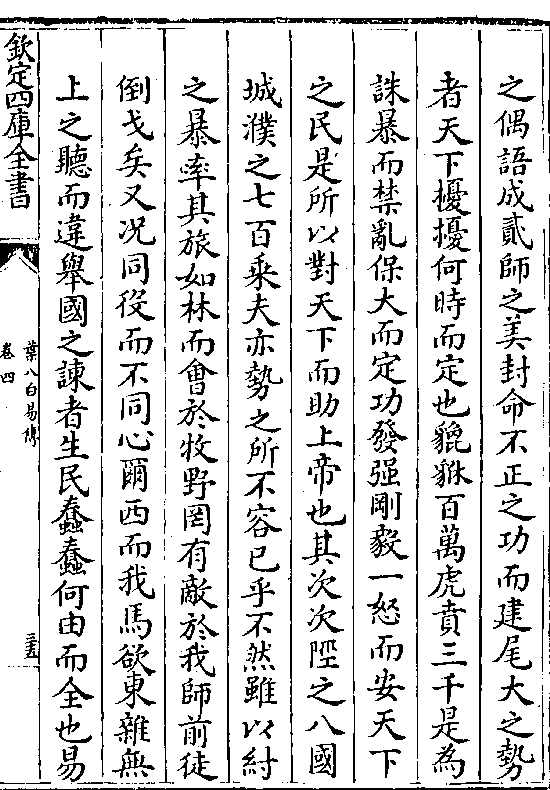 之偶語成貳師之美封命不正之功而建尾大之勢
者天下擾擾何時而定也貔貅百萬虎賁三千是為
誅暴而禁亂保大而定功發强剛毅一怒而安天下
之民是所以對天下而助上帝也其次次陘之八國
城濮之七百乘夫亦勢之所不容已乎不然雖以紂
之暴率其旅如林而會於牧野罔有敵於我師前徒
倒戈矣又况同役而不同心爾西而我馬欲東雜無
上之聽而違舉國之諫者生民蠢蠢何由而全也易
欽定四庫全書
葉八白易傳
卷四
三五